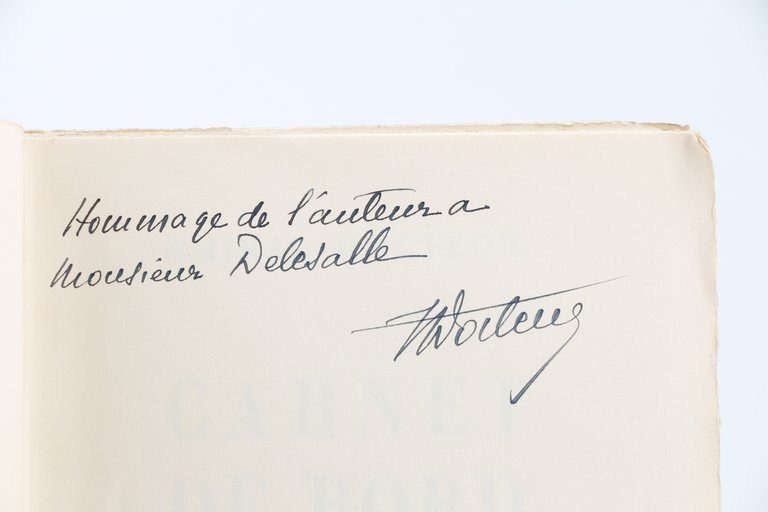 Hommage de l'auteur a
Monsieur Delesalle
CARNET
DE BORD